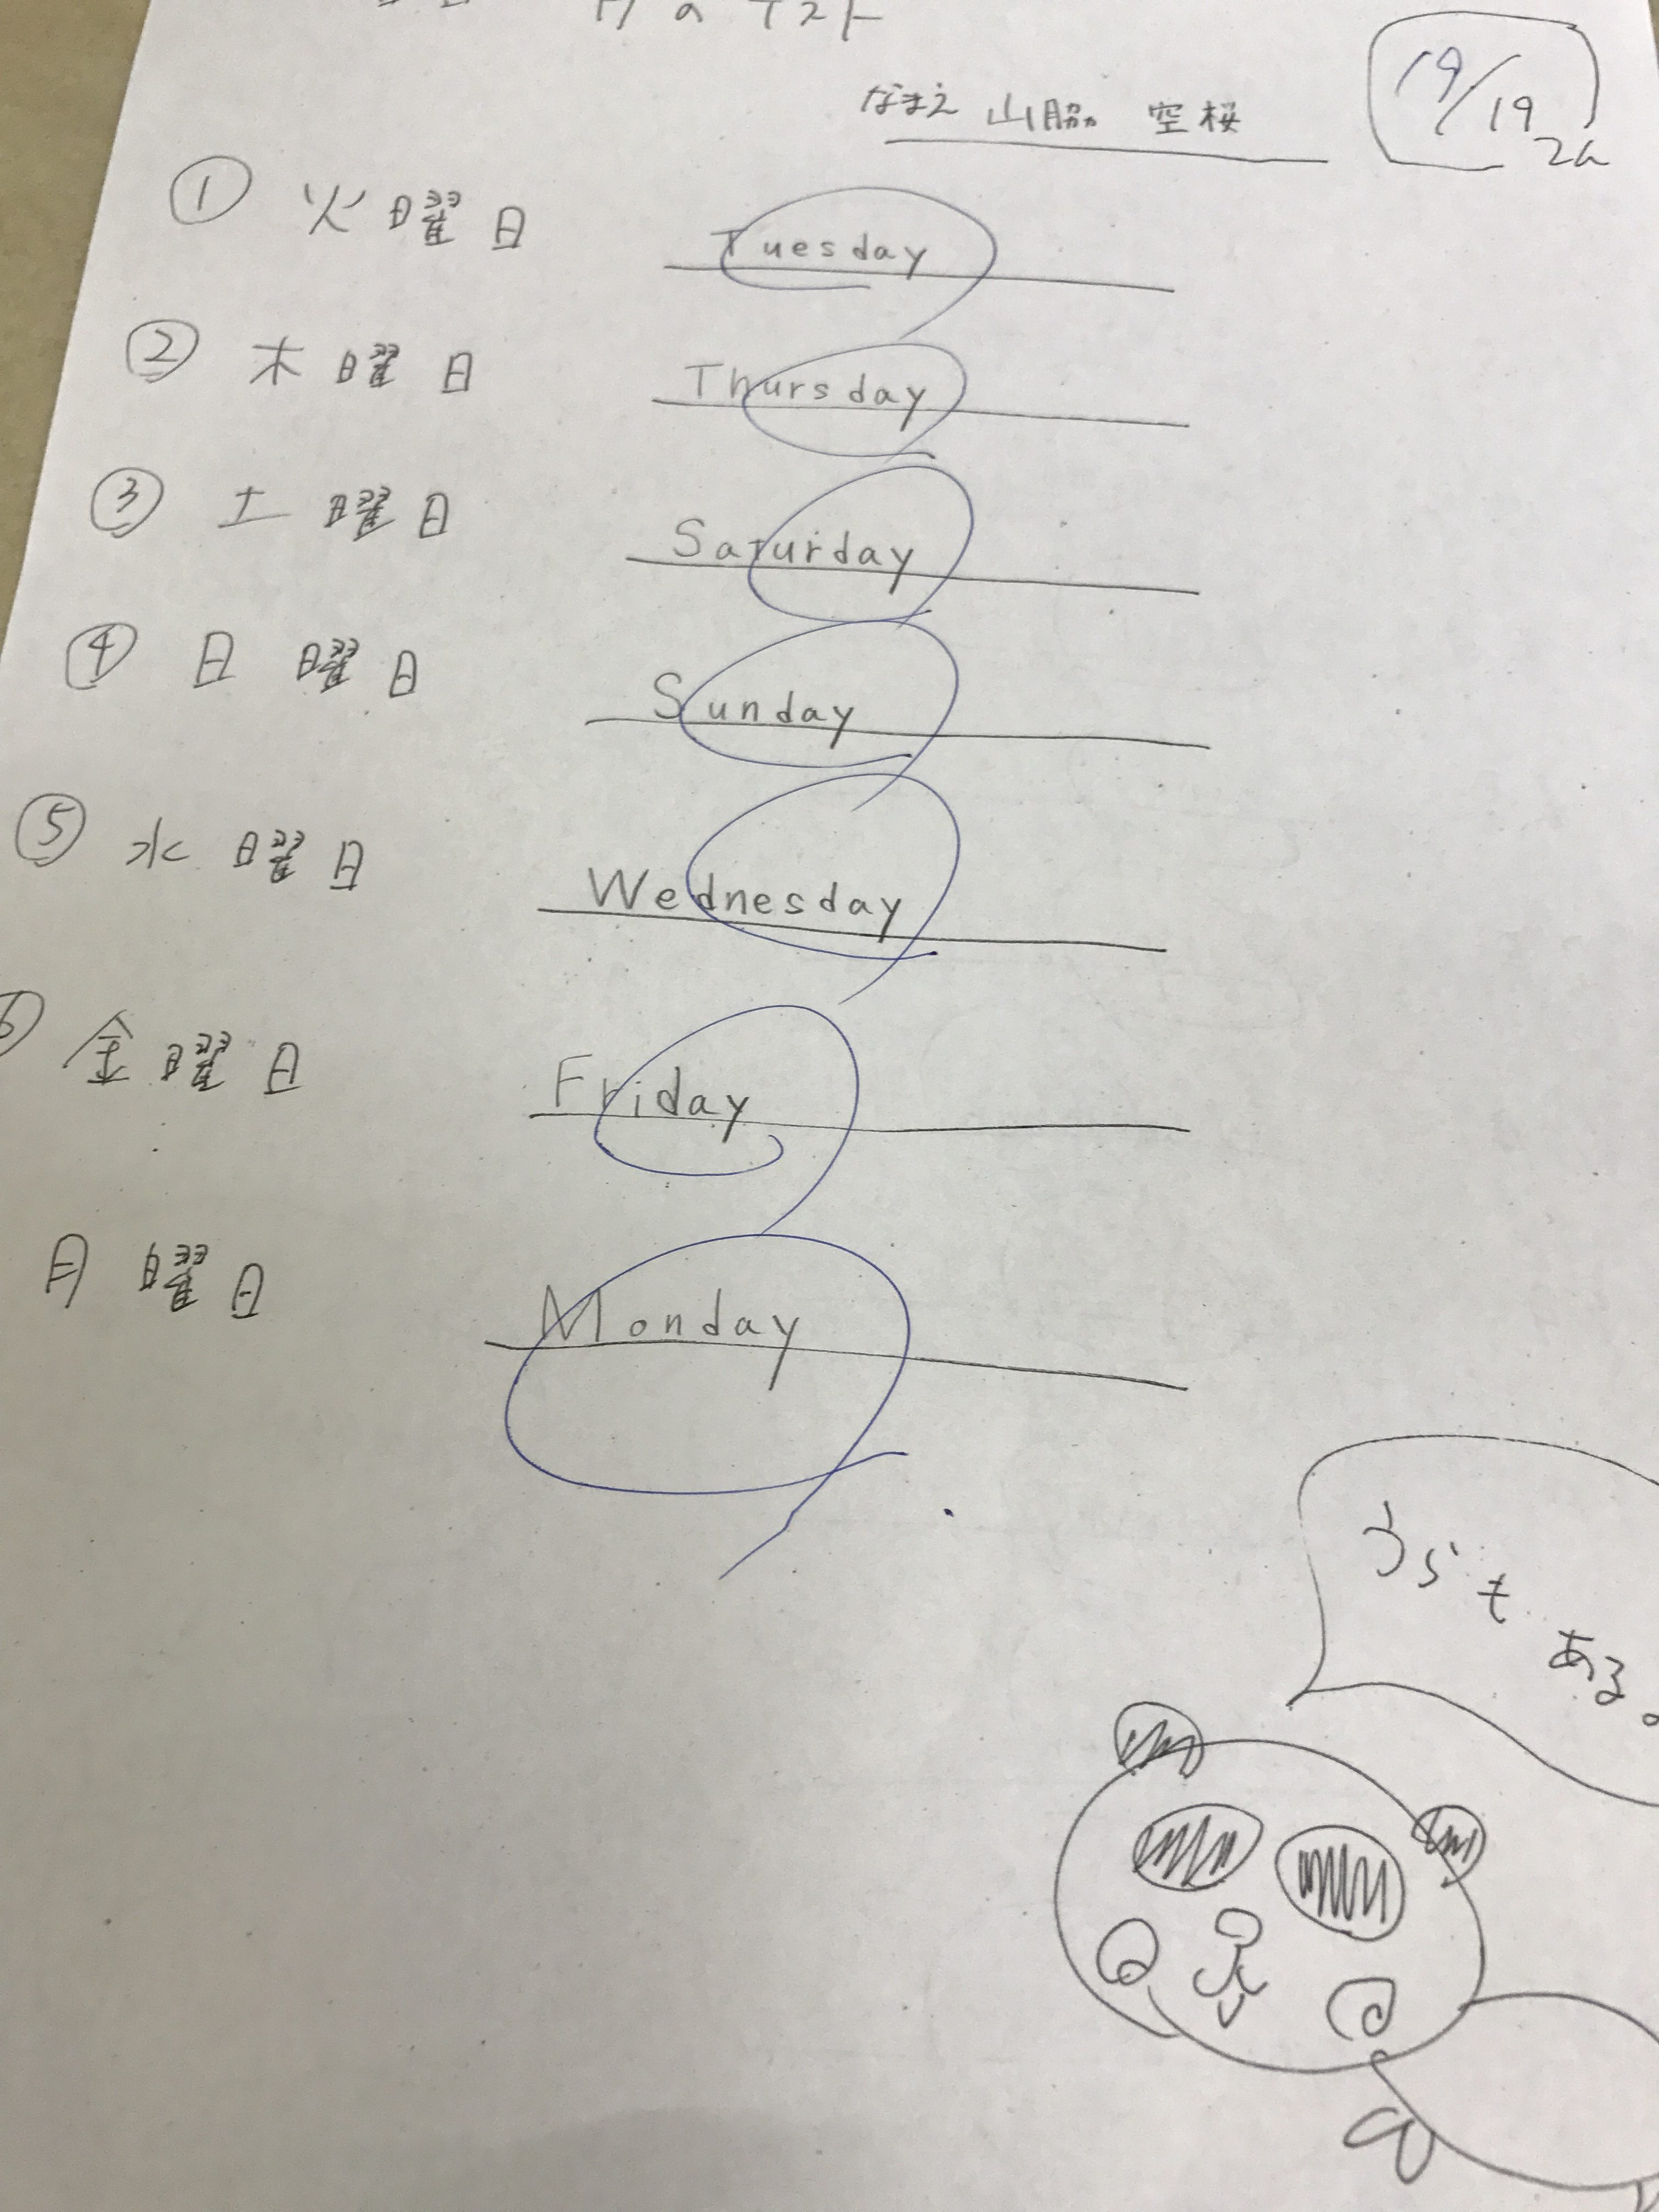 月のテスト
なまえ 山脇 空桜
19/19
① 火曜日 Tuesday
② 木曜日 Thursday
③ 土曜日 Saturday
④ 日曜日 Sunday
⑤ 水曜日 Wednesday
⑥ 金曜日 Friday
月曜日 Monday
うらも
ある。